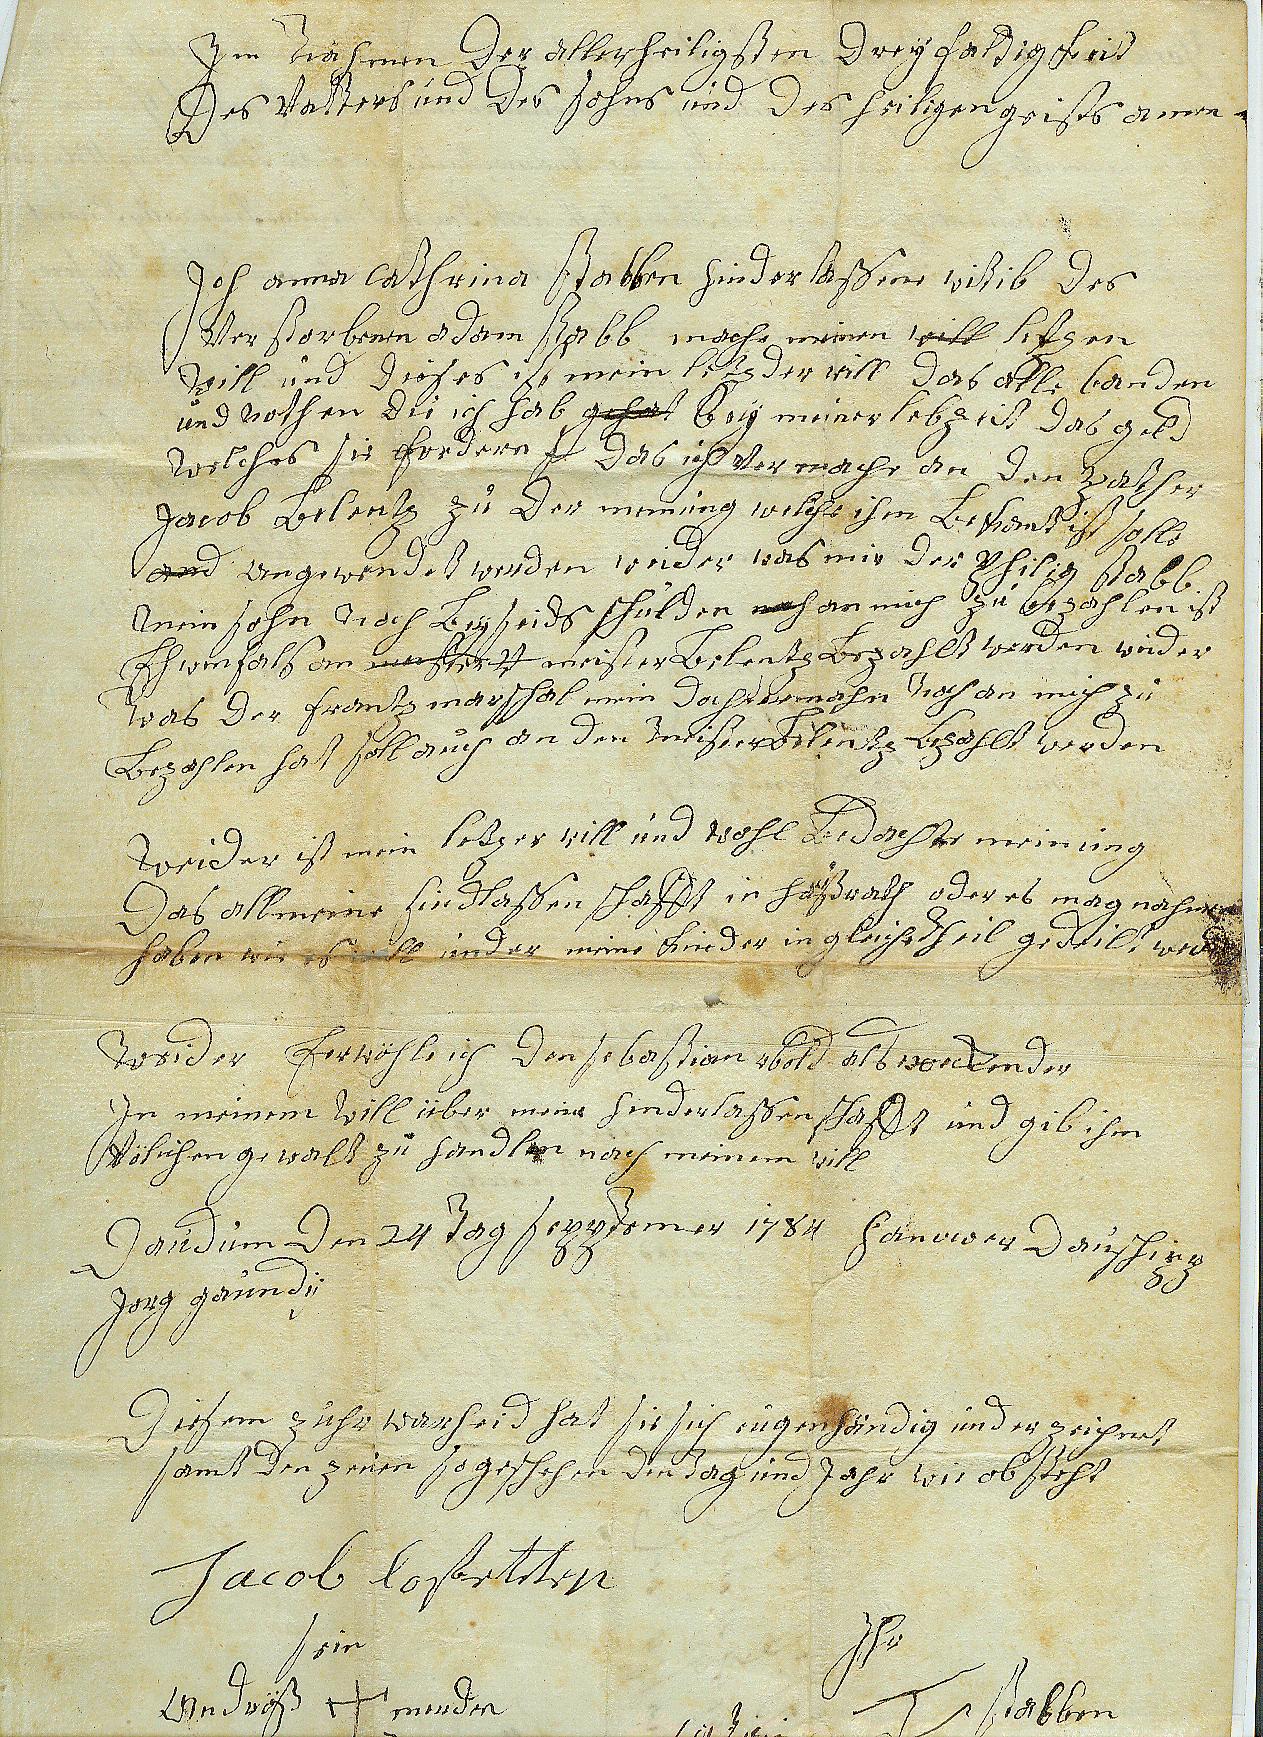 Im Nahmen Der allerheiligsten Dreyfaltigkeit
Des Vatters und Des Sohns und Des heiligen geists amen
Ich anna Cathrina Stabben hinderlassene witib Des
Verstorbenen adam Stabb mache meinen will letzen
will und Dieses ist mein letzder will Das alle banden
und nothen Die ich hab gehat bey meiner lebzeit Das geld
welches sie fordern Das ich Vermache an Den pather
Jacob Belentz zu Der meinung welche ihm Bekant ist solle
and angewendet werden weider was mir Der Philip Stabb
mein sohn noch Beyseids schulden noch an mich zu bezahlen ist
Ehwenfals an meister Belentz Bezahlt werden weider
was Der frantz marschal mein Dochtermahn noch an mich zu
Bezahlen hat soll auch an den meister Belentz bezahlt werden
weider ist mein letzer will und wohl Bedachte meinung
Das all meine hindlassenschafft in haußrath oder es mag nahmen
haben wie es will under meine kinder in gleiche theil gedeilt werd
weider Erwöhle ich Den sebastian
In meinem will über meine hinderlassenschafft und gib ihm
Völichen gewalt zu handlen nach meinem will
Daudum Den 24 Tag Seppdemer 1784 Hanower Daunschipp
Jorg gaundij
Diesem zuhr warheid hat sie sich eugenhändig underzeichnet
samt den zeuen so geschehen den Tag und Jahr wie obsteht
Jacob
sein Ihr
Andräß + Stabben